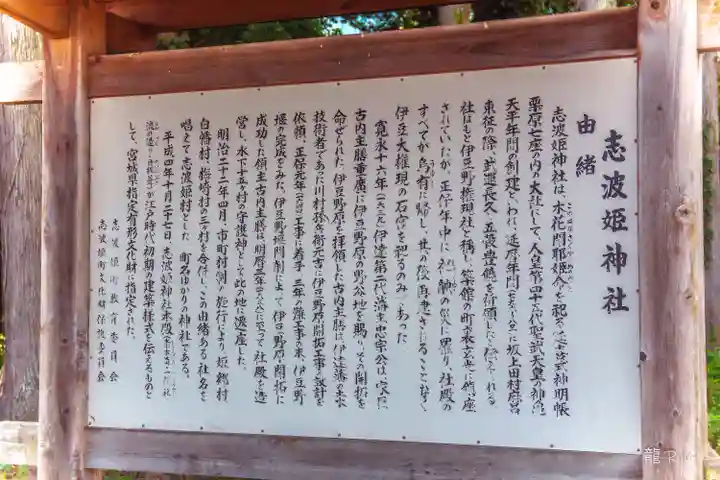 志波姫神社
由緒
志波姫神社は、木花開耶姫命を祀る延喜式神明帳
栗原七座の内の大社にして、人皇第四十五代聖武天皇の神
天平年間の創建といわれ、延暦年間
に坂上田村麻呂
東征の際、武運長久、五穀豊穣を祈願したと伝えられる。
社はもと伊豆野権現社と称し、築館の町裏玄光に鎮座
されていたが、正保年中に神
の災に罹り、社殿の
すべてが烏有に帰し、其の後再建さるることなく、
伊豆大権現の石宮を祀るのみであった。
寛永十六年
伊達第二代藩主忠宗公は、家臣
古内主膳重廣に伊豆野原の野谷地を賜り、その開拓を
命ぜられた。伊豆野原を拝領した古内主膳は、伊達藩の土木
技術者であった川村孫兵衛元吉に伊豆野原開拓工事の設計を
依頼、正保元年
工事に着手、三年の難工事の末、伊豆野
堰の完成をみた。伊豆野堰開削によって伊豆野原開拓に
成功した領主古内主膳は、明暦三年
に至って社殿を造
営し、水下十五ヶ村の守護神として此の地に遷座した。
明治二十二年四月、市町村制の施行により、姫郷村
白幡村、梅崎村の三ヶ村を合併し、この由緒ある社名を
唱えて志波姫村とした。町名ゆかりの神社である。
平成四年十月二十七日、志波姫神社本殿
が江戸時代初期の建築様式を伝えるものと
して、宮城県指定有形文化財に指定された。
志波姫町教育委員会
志波姫町文化財保護委員会
龍